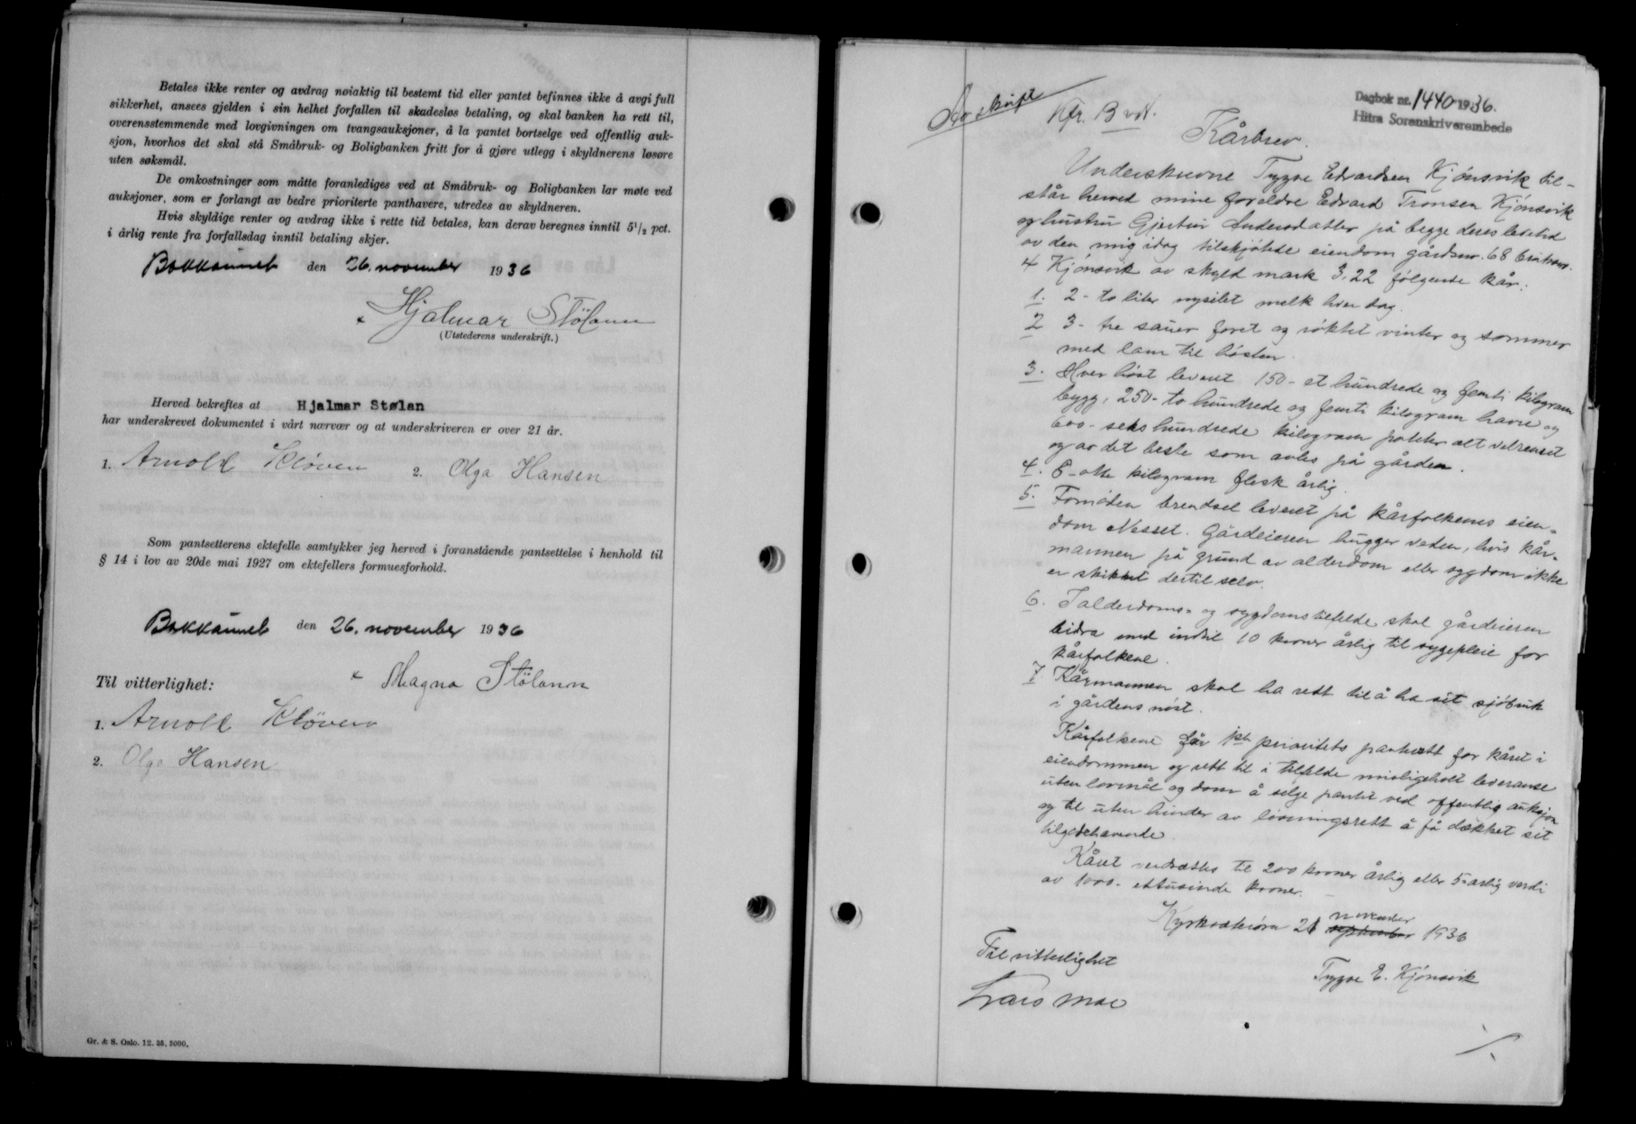 Betales ikke renter og avdrag nøiaktig til bestemt tid eller pantet befinnes ikke å avgi full
sikkerhet, ansees gjelden i sin helhet forfallen til skadesløs betaling, og skal banken ha rett til,
overensstemmende med lovgivningen om tvangsauksjoner, å la pantet bortselge ved offentlig auk-
sjon, hvorhos det skal stå Småbruk- og Boligbanken fritt for å gjøre utlegg i skyldnerens løsøre
uten søksmål.
De omkostninger som måtte foranlediges ved at Småbruk- og Boligbanken lar møte ved
auksjoner, som er forlangt av bedre prioriterte panthavere, utredes av skyldneren.
Hvis skyldige renter og avdrag ikke i rette tid betales, kan derav beregnes inntil 5½ pct.
i årlig rente fra forfallsdag inntil betaling skjer.
den 26. november 1936
Hjalmar Stölann
(Utstederens underskrift.)
Herved bekreftes at Hjalmar Stølan
har underskrevet dokumentet i vårt nærvær og at underskriveren er over 21 år.
1. Arnold Kløven 2. Olga Hansen
Som pantsetterens ektefelle samtykker jeg herved i foranstående pantsettelse i henhold til
§ 14 i lov av 20de mai 1927 om ektefellers formuesforhold.
den 26. november 1936
Magna Stölann
Til vitterlighet:
1. Arnold Kløven
2. Olga Hansen
Gr. & S. Oslo. 12. 35. 5000.
Avskrift
Dagbok nr. 1440 1936.
Hitra Sorenskriverembede
Kårbrev.
Underskrevne Trygve Edvardsen Kjönsvik til-
står herved mine foreldre Edvard Tronsen Kjönsvik
og hustru Gjertin Andersdatter på begge deres levetid
av den mig idag tilskjötede eiendom gårdsnr. 68 bruksnr.
4 Kjönsvik av skyld mark 3,22 følgende kår:
1. 2- to liter nysilet melk hver dag.
2 3- tre sauer foret og røktet vinter og sommer
med lam til høsten.
3. Hver høst leveret 150- et hundrede og femti kilogram
bygg, 250- to hundrede og femti kilogram havre og
600- seks hundrede kilogram poteter alt velrenset
og av det beste som avles på gården.
4. 8- otte kilogram flesk årlig.
5. Fornöden brendsel leveret på kårfolkenes eien-
dom Nesset. Gårdeieren hugger veden, hvis kår-
mannen på grund av alderdom eller sygdom ikke
er skikket dertil selv.
6. I alderdoms- og sygdomstilfelde skal gårdeieren
bidra med indtil 10 kroner årlig til sygepleie for
kårfolkene.
7 Kårmannen skal ha rett til å ha sit sjöbruk
i gårdens nöst.
Kårfolkene får 1ste prioritets panterett for kåret i
eiendommen og rett til i tilfelde misligeholt leveranse
uten lovmål og dom å selge pantet ved offentlig auksjon
og til uten hinder av løsningsrett å få dækket sit
tilgodehavende.
Kåret verdsættes til 200 kroner årlig eller 5-årlig verdi
av 1000- ettusinde kroner.
Kyrksæterøra 21 november 1936
september
Til vitterlighet
Trygve E. Kjönsvik
Lars Moe